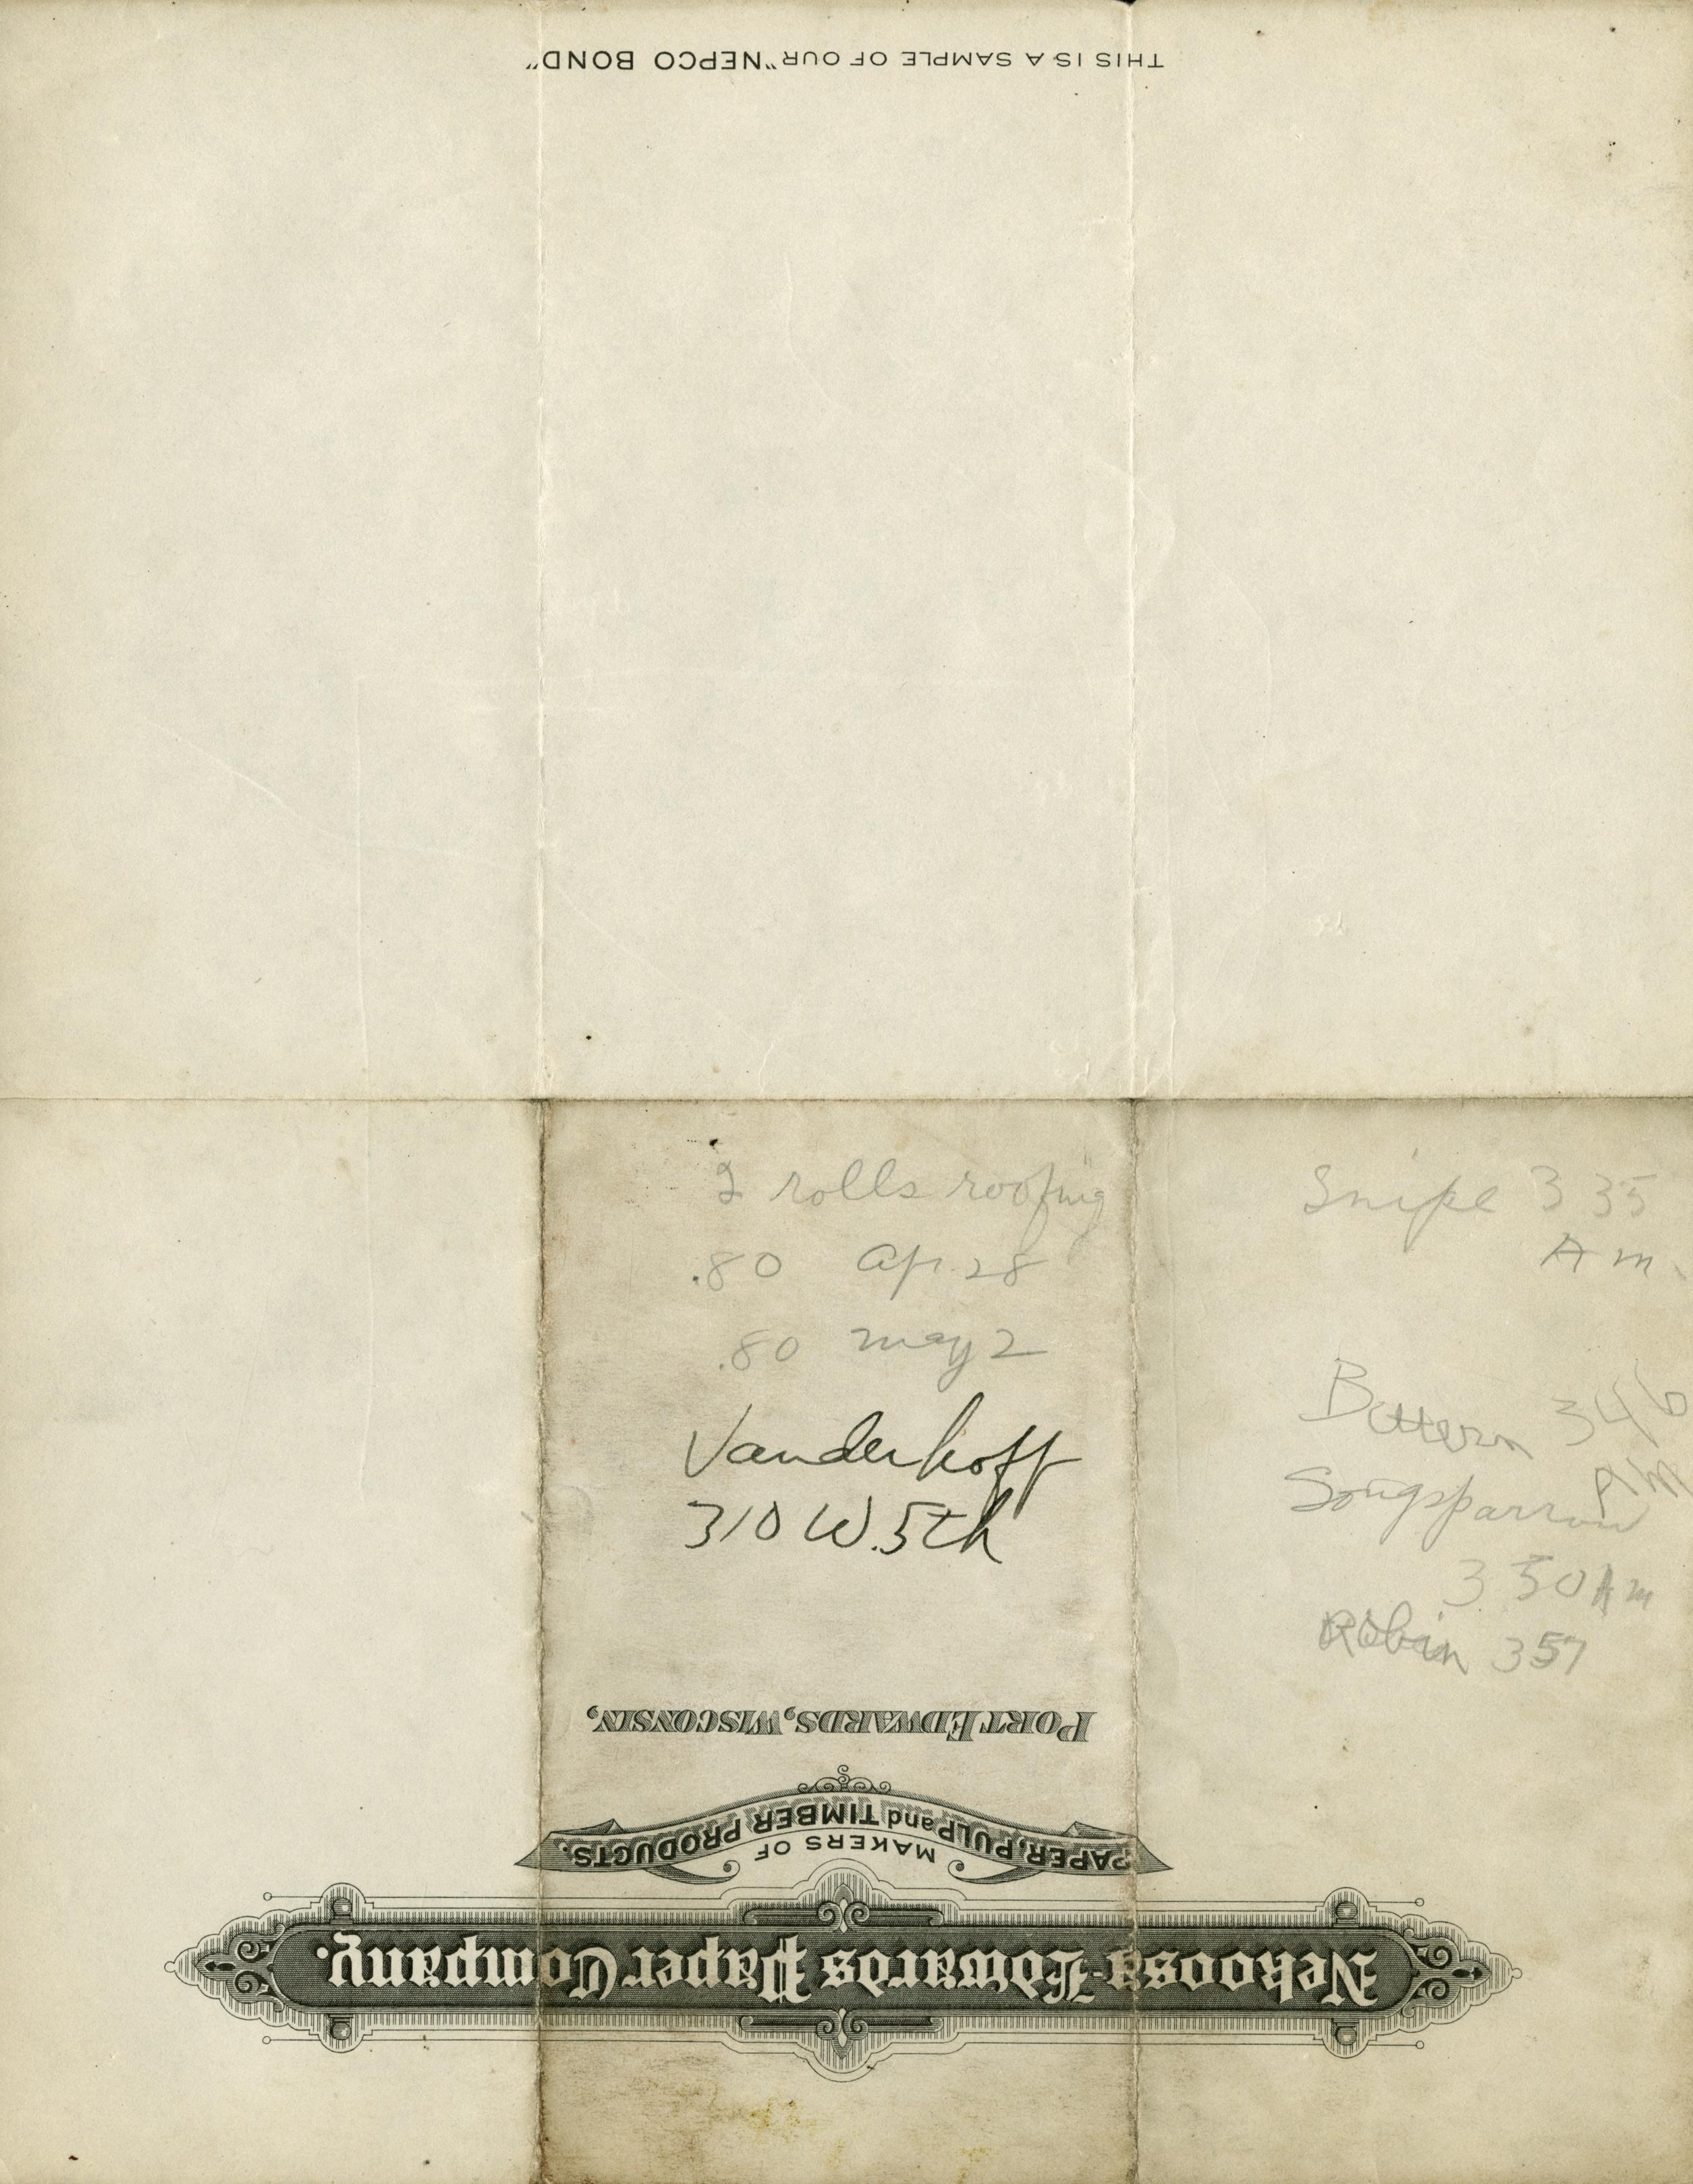 THIS IS A SAMPLE OF OUR "NEPCO BOND"
2 rolls roofing
.80 Ap. 28
.80 may 2
Vanderhoff
310 W. 5th
Snipe 3 35
A m.
Bittern 346
AM
Songsparrow
3 50 Am
Robin 357
PORT EDWARDS, WISCONSIN,
MAKERS OF
PAPER, PULP and TIMBER PRODUCTS.
Nekoosa-Edwards Paper Company.